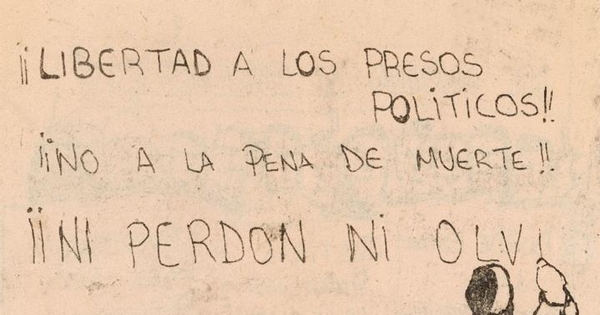 ¡¡LIBERTAD A LOS PRESOS
POLITICOS!!
¡¡NO A LA PENA DE MUERTE!!.
¡¡NI PERDON NI